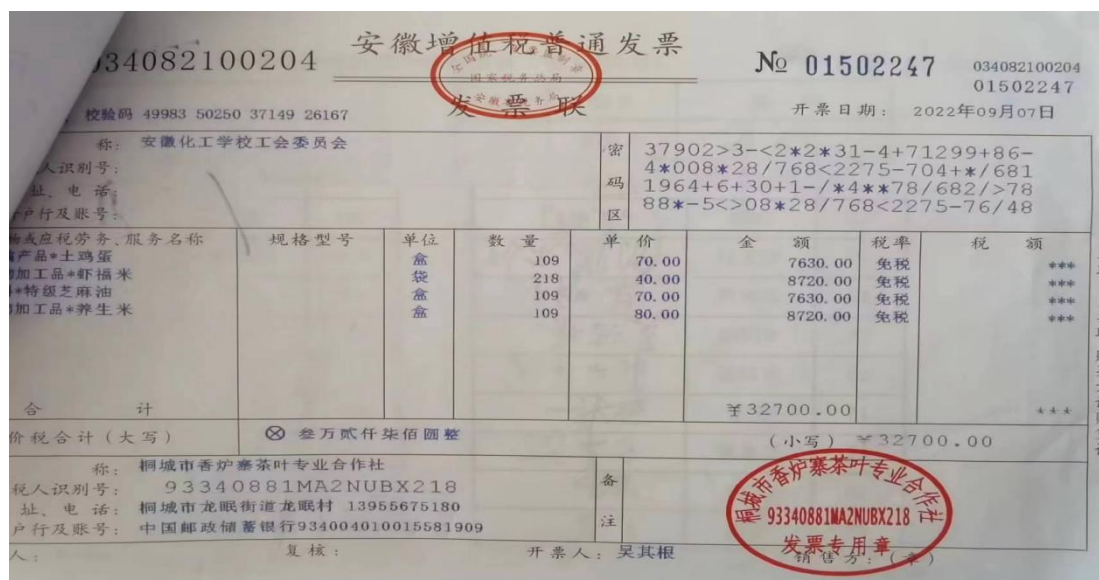 安徽增值税普通发票
034082100204
№ 01502247
034082100204
01502247
发票联
校验码 49983 50250 37149 26167
开票日期: 2022年09月07日
称: 安徽化工学校工会委员会
人识别号:
址、电话:
户行及账号:
密码区
37902>3-<2*2*31-4+71299+86-
4*008*28/768<2275-704+*/681
1964+6+30+1-/*4**78/682/>78
88*-5<>08*28/768<2275-76/48
物或应税劳务、服务名称 规格型号 单位 数量 单价 金额 税率 税额
产品*土鸡蛋 盒 109 70.00 7630.00 免税 ***
加工品*虾福米 袋 218 40.00 8720.00 免税 ***
*特级芝麻油 盒 109 70.00 7630.00 免税 ***
加工品*养生米 盒 109 80.00 8720.00 免税 ***
合计 ¥32700.00 ***
价税合计(大写) ⊗ 叁万贰仟柒佰圆整 (小写) ¥32700.00
称: 桐城市香炉寨茶叶专业合作社
税人识别号: 93340881MA2NUBX218
址、电话: 桐城市龙眠街道龙眠村 13955675180
户行及账号: 中国邮政储蓄银行934004010015581909
备注
桐城市香炉寨茶叶专业合作社
93340881MA2NUBX218
发票专用章
人: 复核: 开票人: 吴其根 销售方:(章)